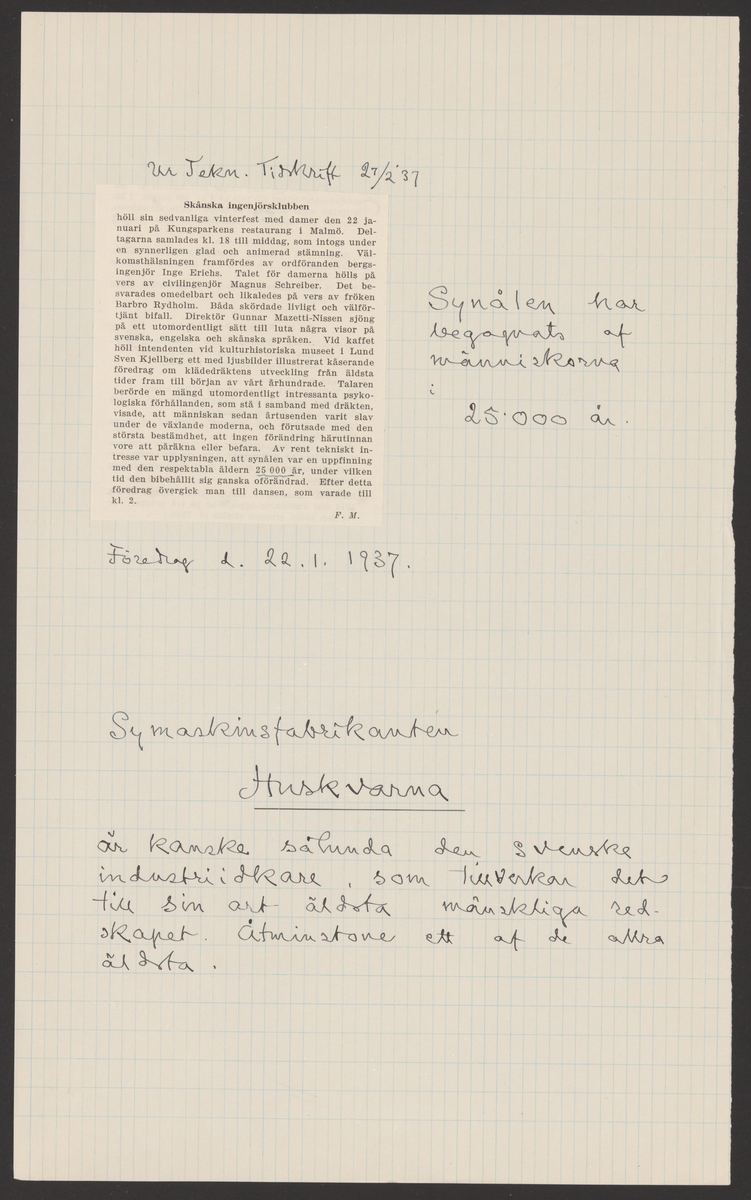 Ur Tekn. Tidskrift 27/2 '37
Skånska ingenjörsklubben
höll sin sedvanliga vinterfest med damer den 22 ja-
nuari på Kungsparkens restaurang i Malmö. Del-
tagarna samlades kl. 18 till middag, som intogs under
en synnerligen glad och animerad stämning. Väl-
komsthälsningen framfördes av ordföranden bergs-
ingenjör Inge Erichs. Talet för damerna hölls på
vers av civilingenjör Magnus Schreiber. Det be-
svarades omedelbart och likaledes på vers av fröken
Barbro Rydholm. Båda skördade livligt och välför-
tjänt bifall. Direktör Gunnar Mazetti-Nissen sjöng
på ett utomordentligt sätt till luta några visor på
svenska, engelska och skånska språken. Vid kaffet
höll intendenten vid kulturhistoriska museet i Lund
Sven Kjellberg ett med ljusbilder illustrerat kåserande
föredrag om klädedräktens utveckling från äldsta
tider fram till början av vårt århundrade. Talaren
berörde en mängd utomordentligt intressanta psyko-
logiska förhållanden, som stå i samband med dräkten,
visade, att människan sedan årtusenden varit slav
under de växlande moderna, och förutsade med den
största bestämdhet, att ingen förändring härutinnan
vore att påräkna eller befara. Av rent tekniskt in-
tresse var upplysningen, att synålen var en uppfinning
med den respektabla åldern 25 000 år, under vilken
tid den bibehållit sig ganska oförändrad. Efter detta
föredrag övergick man till dansen, som varade till
kl. 2.
F. M.
Synålen har
begagnats af
människorna
i
25.000 år.
Föredrag d. 22.1. 1937.
Symaskinsfabrikanten
Huskvarna
är kanske sålunda den svenske
industriidkare, som tillverkar det
till sin art äldsta mänskliga red-
skapet. Åtminstone ett af de allra
äldsta.